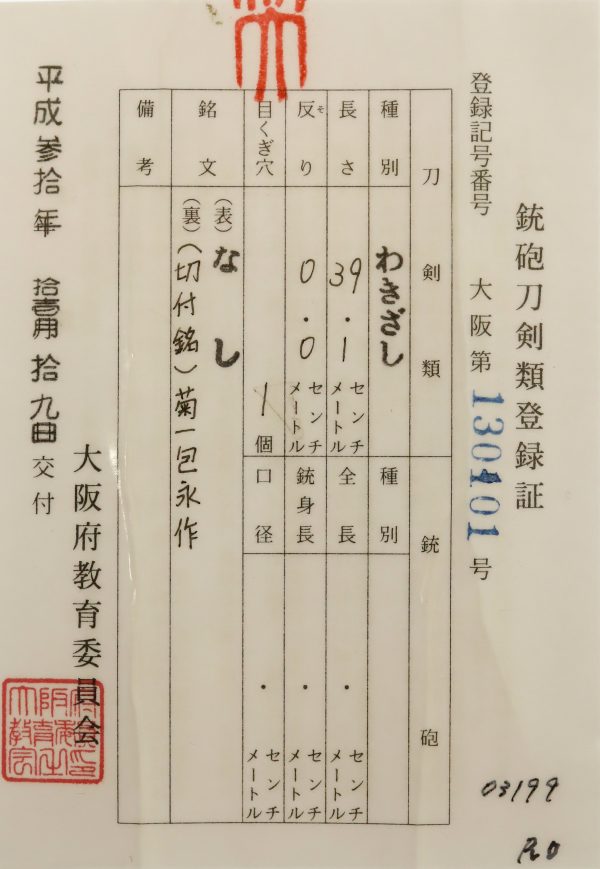 銃砲刀剣類登録証
登録記号番号 大阪第130401号
刀剣類
銃砲
種別 わきざし
長さ 39.1センチメートル
反り 0.0センチメートル
そ
目くぎ穴 1個
銘文
(表) なし
(裏) (切付銘) 菊一包永作
備考
種別
全長 ・ センチメートル
銃身長 ・ センチメートル
口径 ・ センチメートル
平成参拾年 拾壹月拾九日交付
大阪府教育委員会
03199